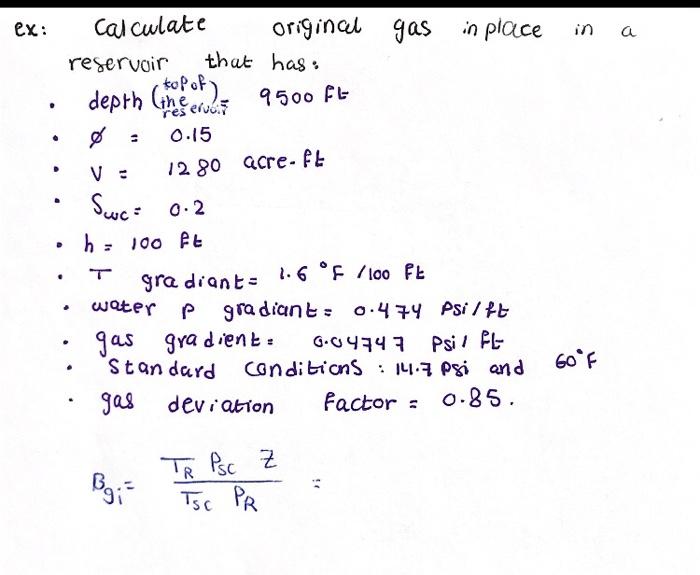 ex: Calculate original gas in place in a
reservoir that has:
• depth (top of the reservoir) = 9500 ft
• ø = 0.15
• V = 1280 acre-ft
• Swc = 0.2
• h = 100 ft
• T gradiant = 1.6 °F /100 ft
• water P gradiant = 0.474 Psi/ft
• gas gradient = 0.04747 Psi/ft
• Standard conditions : 14.7 Psi and 60°F
• gas deviation factor = 0.85.
Bgi = TR PSC Z / TSC PR =